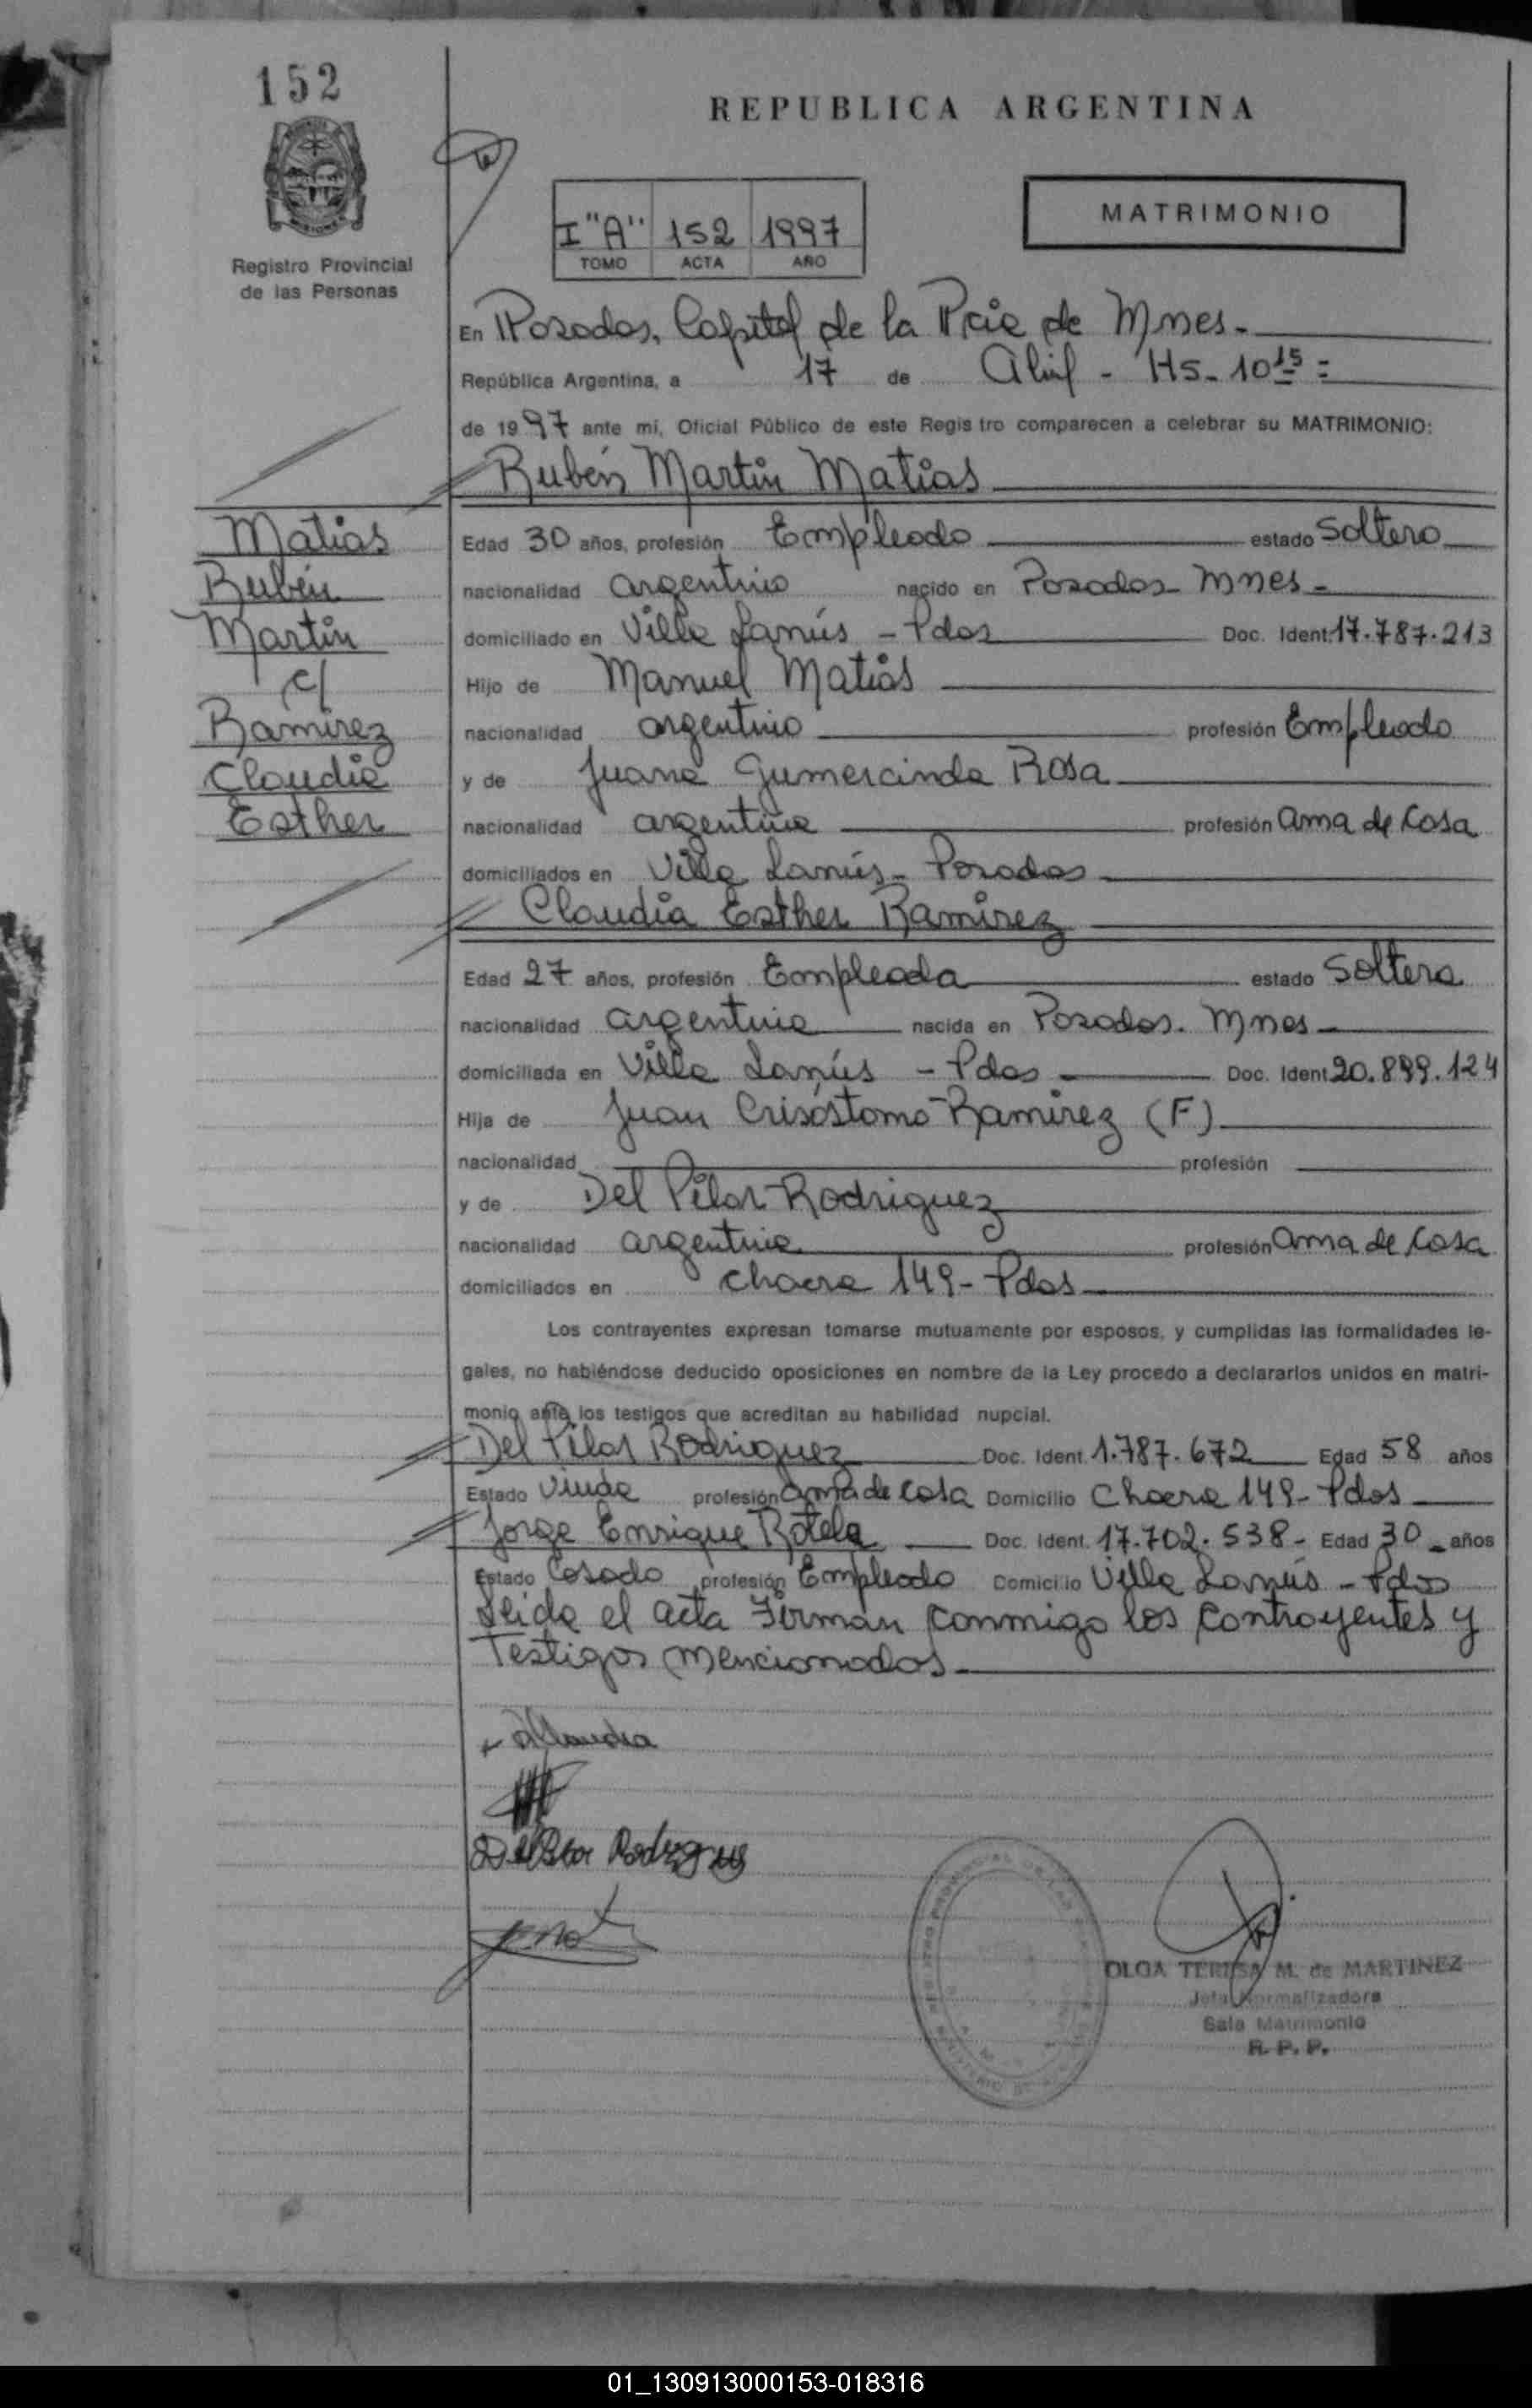 152
REPUBLICA ARGENTINA
I "A" 152 1997
TOMO ACTA AÑO
MATRIMONIO
Registro Provincial
de las Personas
En Posadas, Capital de la Pcia de Mnes.
República Argentina, a 17 de Abril - Hs. 10 15 =
de 1997 ante mí, Oficial Público de este Registro comparecen a celebrar su MATRIMONIO:
Rubén Martin Matias
Matias
Rubén
Martin
c/
Ramirez
Claudia
Esther
Edad 30 años, profesión Empleado estado Soltero
nacionalidad argentino nacido en Posadas - Mnes -
domiciliado en Villa Lanús - Pdas Doc. Ident. 17.787.213
Hijo de Manuel Matias
nacionalidad argentino profesión Empleado
y de Juana Gumercinda Rosa
nacionalidad argentina profesión ama de Casa
domiciliados en Villa Lanús - Posadas
Claudia Esther Ramirez
Edad 27 años, profesión Empleada estado Soltera
nacionalidad argentina nacida en Posadas. Mnes
domiciliada en Villa Lanús - Pdas Doc. Ident 20.899.124
Hija de Juan Crisóstomo Ramirez (F)
nacionalidad profesión
y de Del Pilar Rodriguez
nacionalidad argentina profesión ama de Casa
domiciliados en chacra 149 - Pdas
Los contrayentes expresan tomarse mutuamente por esposos, y cumplidas las formalidades le-
gales, no habiéndose deducido oposiciones en nombre de la Ley procedo a declararlos unidos en matri-
monio ante los testigos que acreditan su habilidad nupcial.
Del Pilar Rodriguez Doc. Ident. 1.787.672 Edad 58 años
Estado Viuda profesión ama de casa Domicilio Chacra 149 - Pdas
Jorge Enrique Rotela Doc. Ident. 17.702.538 - Edad 30 años
Estado Casado profesión Empleado Domicilio Villa Lanús - Pdas
Leida el acta Firman conmigo los contrayentes y
Testigos mencionados
Del Pilar Rodriguez
OLGA TERESA M. de MARTINEZ
Jefa Normalizadora
Sala Matrimonio
R. P. P.
01_130913000153-018316